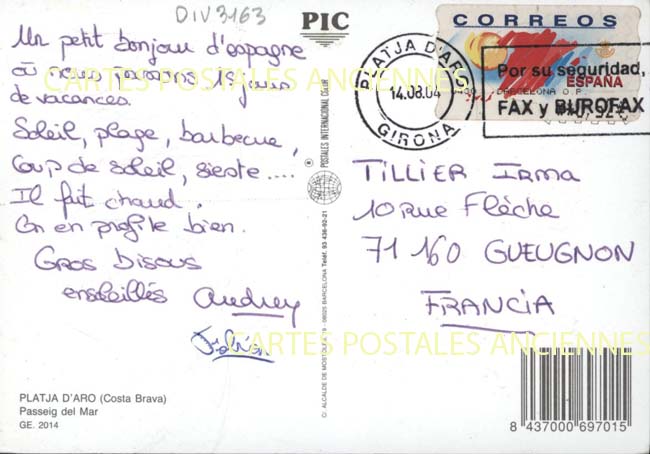 DIV3163
PIC
CORREOS
ESPAÑA
BARCELONA O.P.
PLATJA D'ARO
14.08.04
GIRONA
Por su seguridad,
FAX y BUROFAX
Un petit bonjour d'espagne
où nous passons 15 jours
de vacances.
Soleil, plage, barbecue,
Coup de soleil, sieste....
Il fait chaud.
On en profite bien.
Gros bisous
ensoleillés Audrey
TILLIER Irma
10 rue Flèche
71 160 GUEUGNON
FRANCIA
POSTALES INTERNACIONAL COLOR
C/. ALCALDE DE MOSTOLES, 08025 BARCELONA Teléf. 93 436-92-21
CARTES POSTALES ANCIENNES
CARTES POSTALES ANCIENNES
PLATJA D'ARO (Costa Brava)
Passeig del Mar
GE. 2014
8 437000 697015